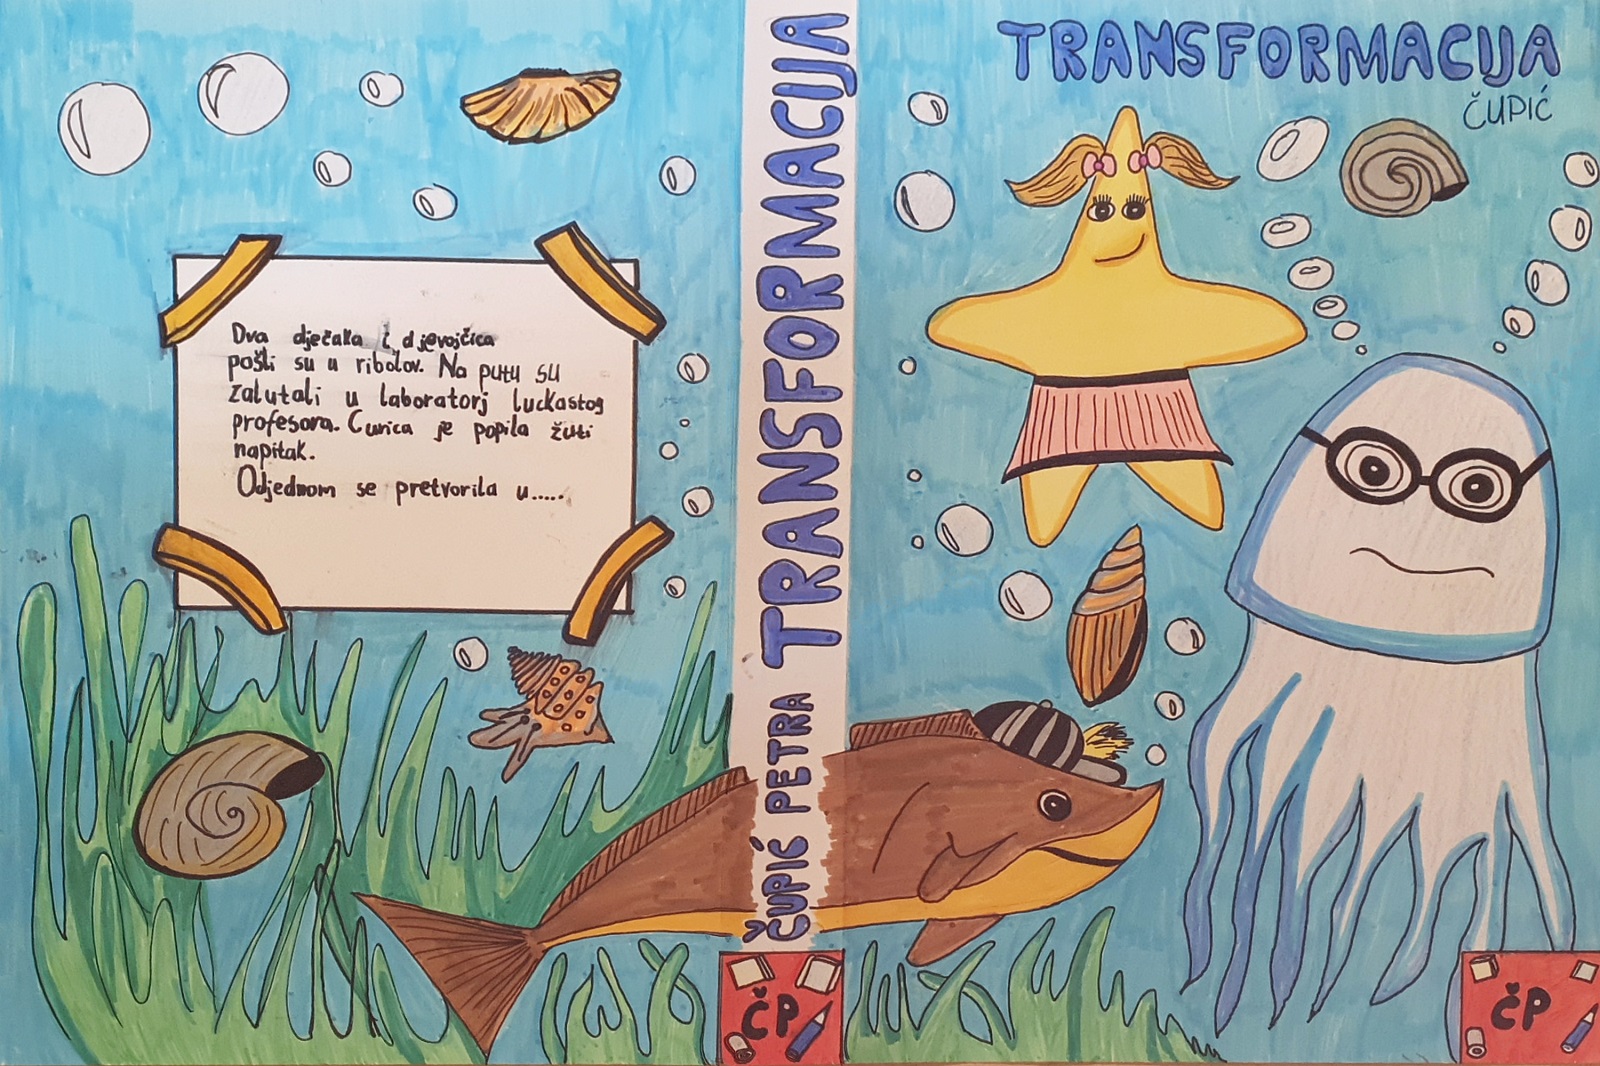 Dva dječaka i djevojčica
pošli su u ribolov. Na putu su
zalutali u laboratorj luckastog
profesora. Curica je popila žuti
napitak.
Odjednom se pretvorila u.....
ČUPIĆ PETRA TRANSFORMACIJA
ČP
TRANSFORMACIJA
ČUPIĆ
ČP